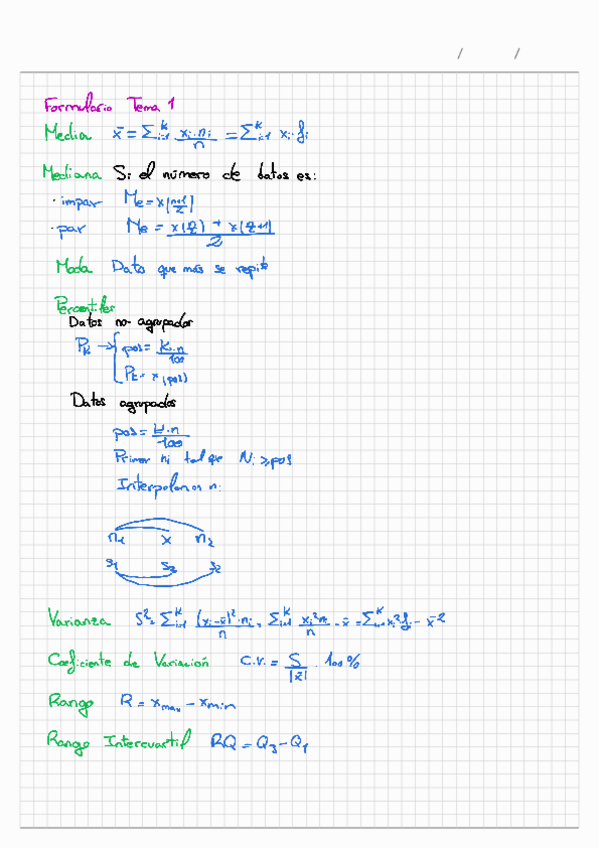 / /
Formulario Tema 1
Media x̄ = Σᵢ₌₁ᴷ xᵢ·nᵢ/n = Σᵢ₌₁ᴷ xᵢ·fᵢ
Mediana Si el número de datos es:
· impar Me = x(n+1/2)
· par Me = x(n/2) + x(n/2+1) / 2
Moda Dato que más se repite
Percentiles
Datos no agrupados
Pₖ → { pos = K·n/100
Pₖ = x(pos)
Datos agrupados
pos = K·n/100
Primer ni tal que Nᵢ ≥ pos
Interpolamos n:
n₁ x n₂
s₁ s₂ s₂
Varianza S² = Σᵢ₌₁ᴷ (xᵢ-x̄)²·nᵢ/n = Σᵢ₌₁ᴷ xᵢ²nᵢ/n - x̄ = Σᵢ₌₁ᴷ xᵢ²fᵢ - x̄²
Coeficiente de Variación C.V. = S/|x̄| · 100%
Rango R = xmax - xmin
Rango Intercuartil RQ = Q₃ - Q₁